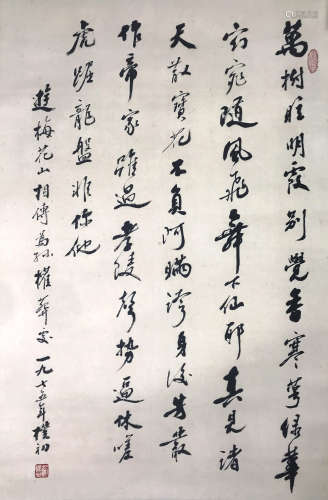 萬樹眩明霞別覺香寒萼綠華
窈窕隨風飛舞下仙耶真見諸
天散寶花不負阿瞞誇身後芳叢
作帝家雖過孝陵聲勢逼休嗟
虎踞龍盤你他
遊梅花山相傳為孫權葬處一九七五年樸初